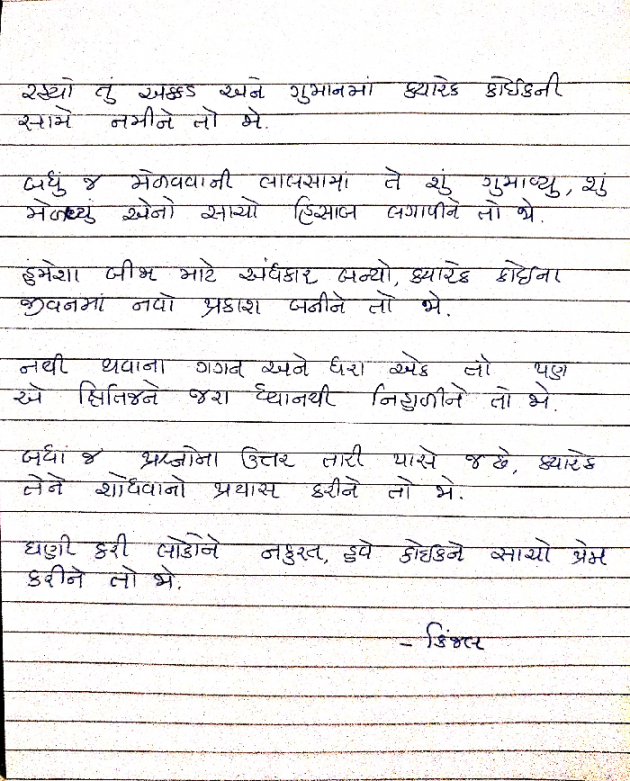 રહ્યો તું અક્કડ અને ગુમાનમાં ક્યારેક કોઈકની
સામે નમીને તો જો.
બધું જ મેળવવાની લાલસામાં તે શું ગુમાવ્યુ, શું
મેળવ્યું એનો સાચો હિસાબ લગાવીને તો જો.
હંમેશા બીજા માટે અંધકાર બન્યો, ક્યારેક કોઈના
જીવનમાં નવો પ્રકાશ બનીને તો જો.
નથી થવાના ગગન અને ધરા એક તો પણ
એ ક્ષિતિજને જરા ધ્યાનથી નિહાળીને તો જો.
બધાં જ પ્રશ્નોના ઉત્તર તારી પાસે જ છે, ક્યારેક
તેને શોધવાનો પ્રયાસ કરીને તો જો.
ઘણી કરી લોકોને નફરત, હવે કોઈકને સાચો પ્રેમ
કરીને તો જો.
- કિંજલ